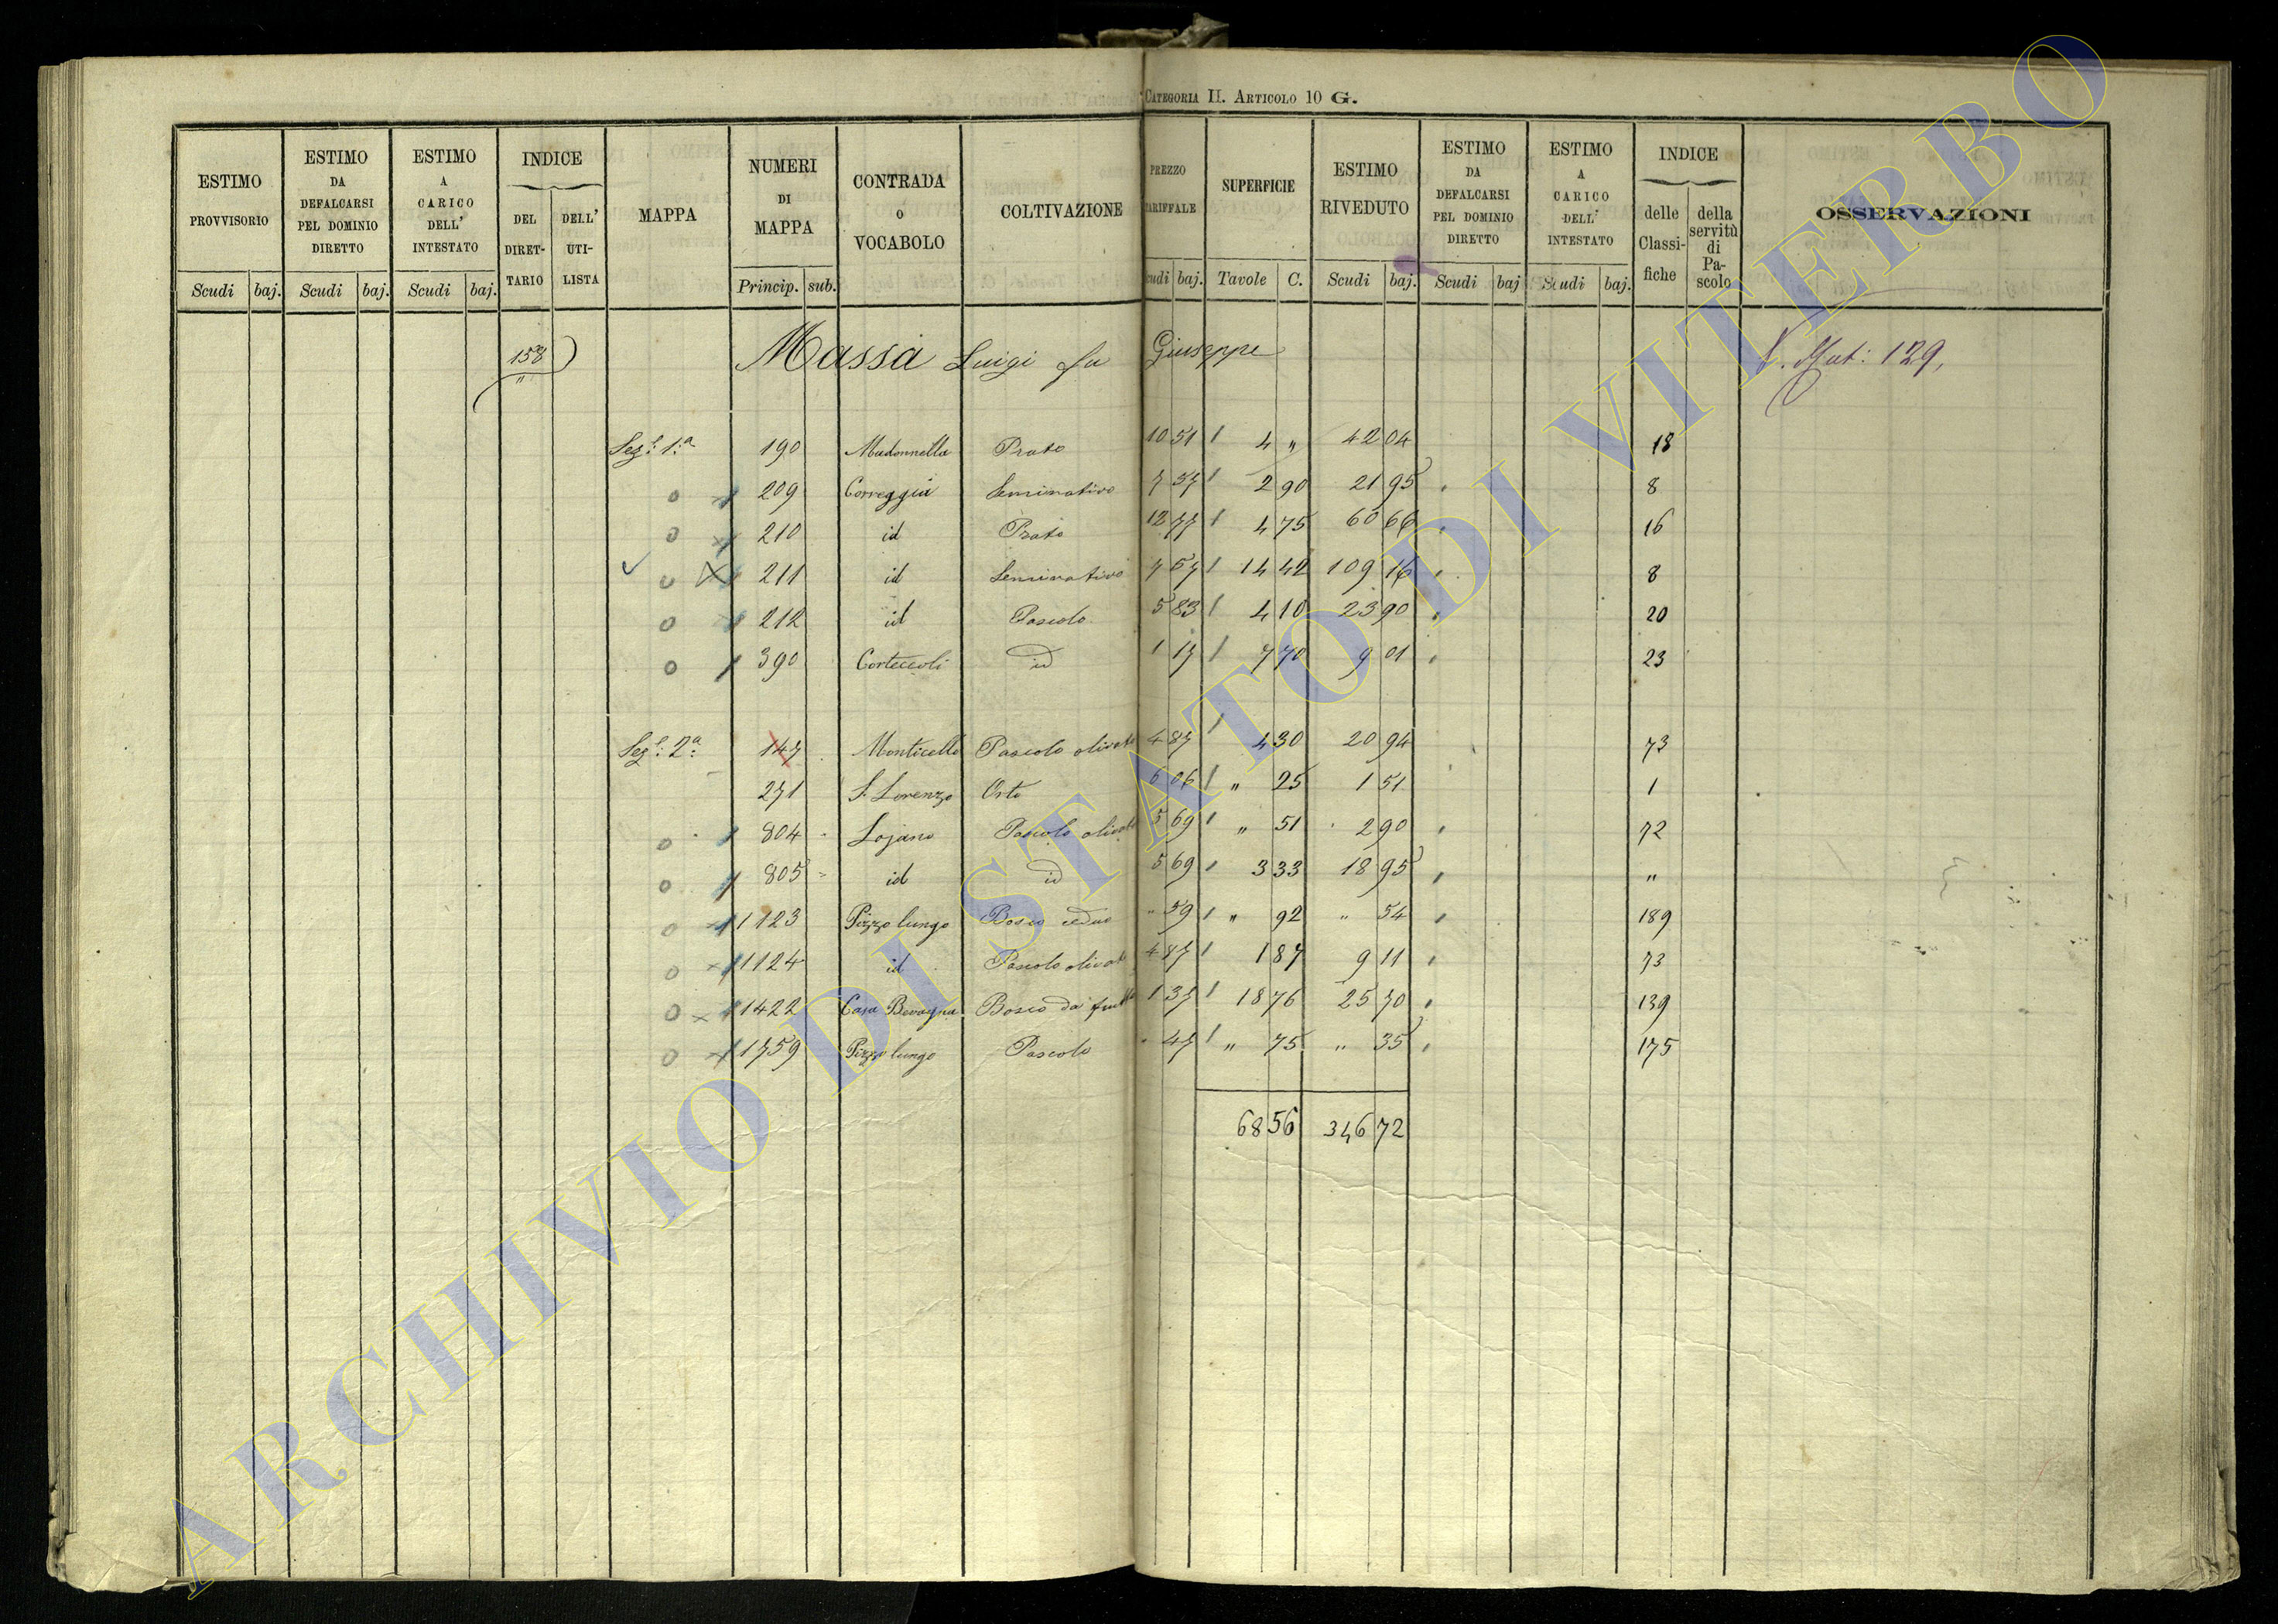 CATEGORIA II. ARTICOLO 10 G.
ESTIMO PROVVISORIO
ESTIMO DA DEFALCARSI PEL DOMINIO DIRETTO
ESTIMO A CARICO DELL' INTESTATO
INDICE
DEL DIRET-TARIO
DELL' UTI-LISTA
MAPPA
NUMERI DI MAPPA
CONTRADA O VOCABOLO
COLTIVAZIONE
PREZZO TARIFFALE
SUPERFICIE
ESTIMO RIVEDUTO
ESTIMO DA DEFALCARSI PEL DOMINIO DIRETTO
ESTIMO A CARICO DELL' INTESTATO
INDICE
delle Classi-fiche
della servitù di Pa-scolo
OSSERVAZIONI
Scudi baj. Scudi baj. Scudi baj. Princip. sub. cudi baj. Tavole C. Scudi baj. Scudi baj Scudi baj.
158 Massa Luigi fu Giuseppe Mat: 129,
Sez.e 1.a 190 Madonnella Prato 10 51 4 " 42 04 18
209 Correggia Seminativo 7 57 2 90 21 95 8
210 id Prato 12 77 4 75 60 66 16
211 id Seminativo 7 57 14 42 109 16 8
212 id Pascolo 5 83 4 10 23 90 20
390 Corteccoli id 1 17 7 70 9 01 23
Sez.e 2.a 147 Monticello Pascolo olivato 4 87 4 30 20 94 73
271 S. Lorenzo Orto 6 06 " 25 1 51 1
804 Lojano Pascolo olivato 5 69 " 51 2 90 72
805 id id 5 69 3 33 18 95 "
1123 Pizzo lungo Bosco ceduo " 59 " 92 " 54 189
1124 id Pascolo olivato 4 87 1 87 9 11 73
1422 Casa Bevagna Bosco da frutto 1 37 18 76 25 70 139
1759 Pizzo lungo Pascolo " 47 " 75 " 35 175
68 56 346 72
ARCHIVIO DI STATO DI VITERBO